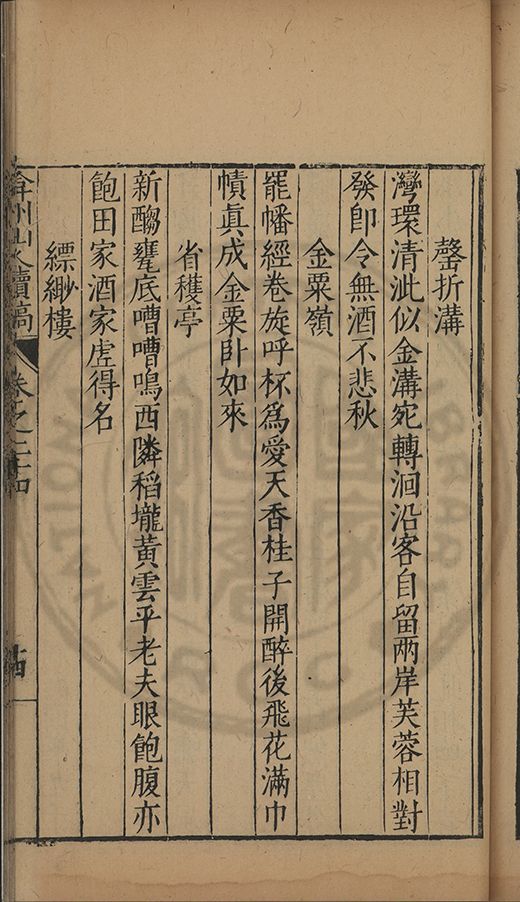 罄折溝
灣環清泚似金溝宛轉洄沿客自留兩岸芙蓉相對
發即令無酒不悲秋
金粟嶺
罷幡經卷旋呼杯為愛天香桂子開醉後飛花滿巾
幘真成金粟臥如來
省穫亭
新醅甕底嘈嘈鳴西隣稻壠黃雲平老夫眼飽腹亦
飽田家酒家虛得名
縹緲樓
弇州山人續稿 卷之二十四